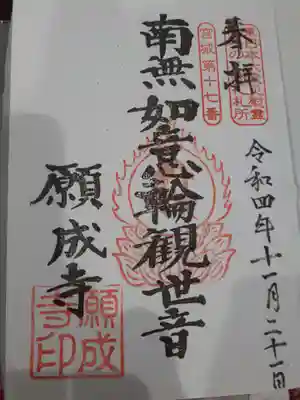 奉拝
宮城第十七番
の札所
令和四年十一月二十一日
南無如意輪観世音
願成寺
願成
寺印